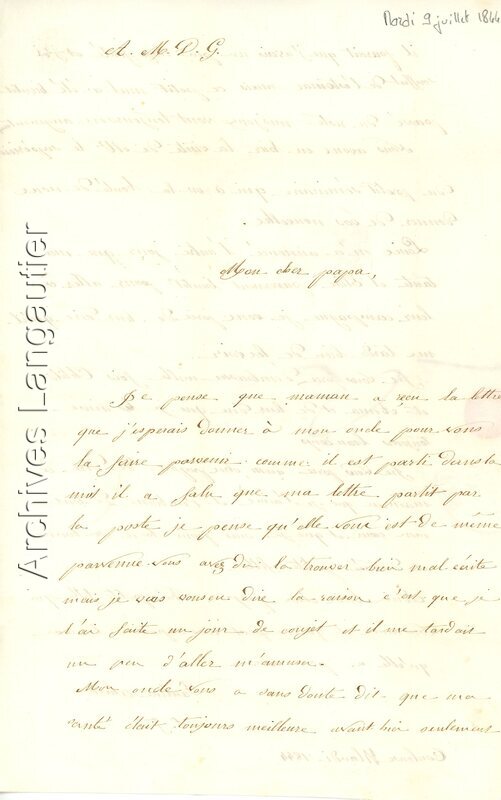 Mardi 9 juillet 1844
A. M. D. G.
Mon cher papa,
Je pense que maman a reçu la lettre
que j'esperais donner à mon oncle pour vous
la faire parvenir comme il est partie dans la
nuit il a falu que ma lettre partit par
la poste je pense qu'elle vous est de même
parvenue vous avez du la trouver bien mal écrite
mais je vais vous en dire la raison c'est que je
l'ai faite un jour de congét et il me tardait
un peu d'aller m'amuser.
Mon oncle vous a sans doute dit que ma
santé était toujours meilleure avant hier seulement
Archives Langautier